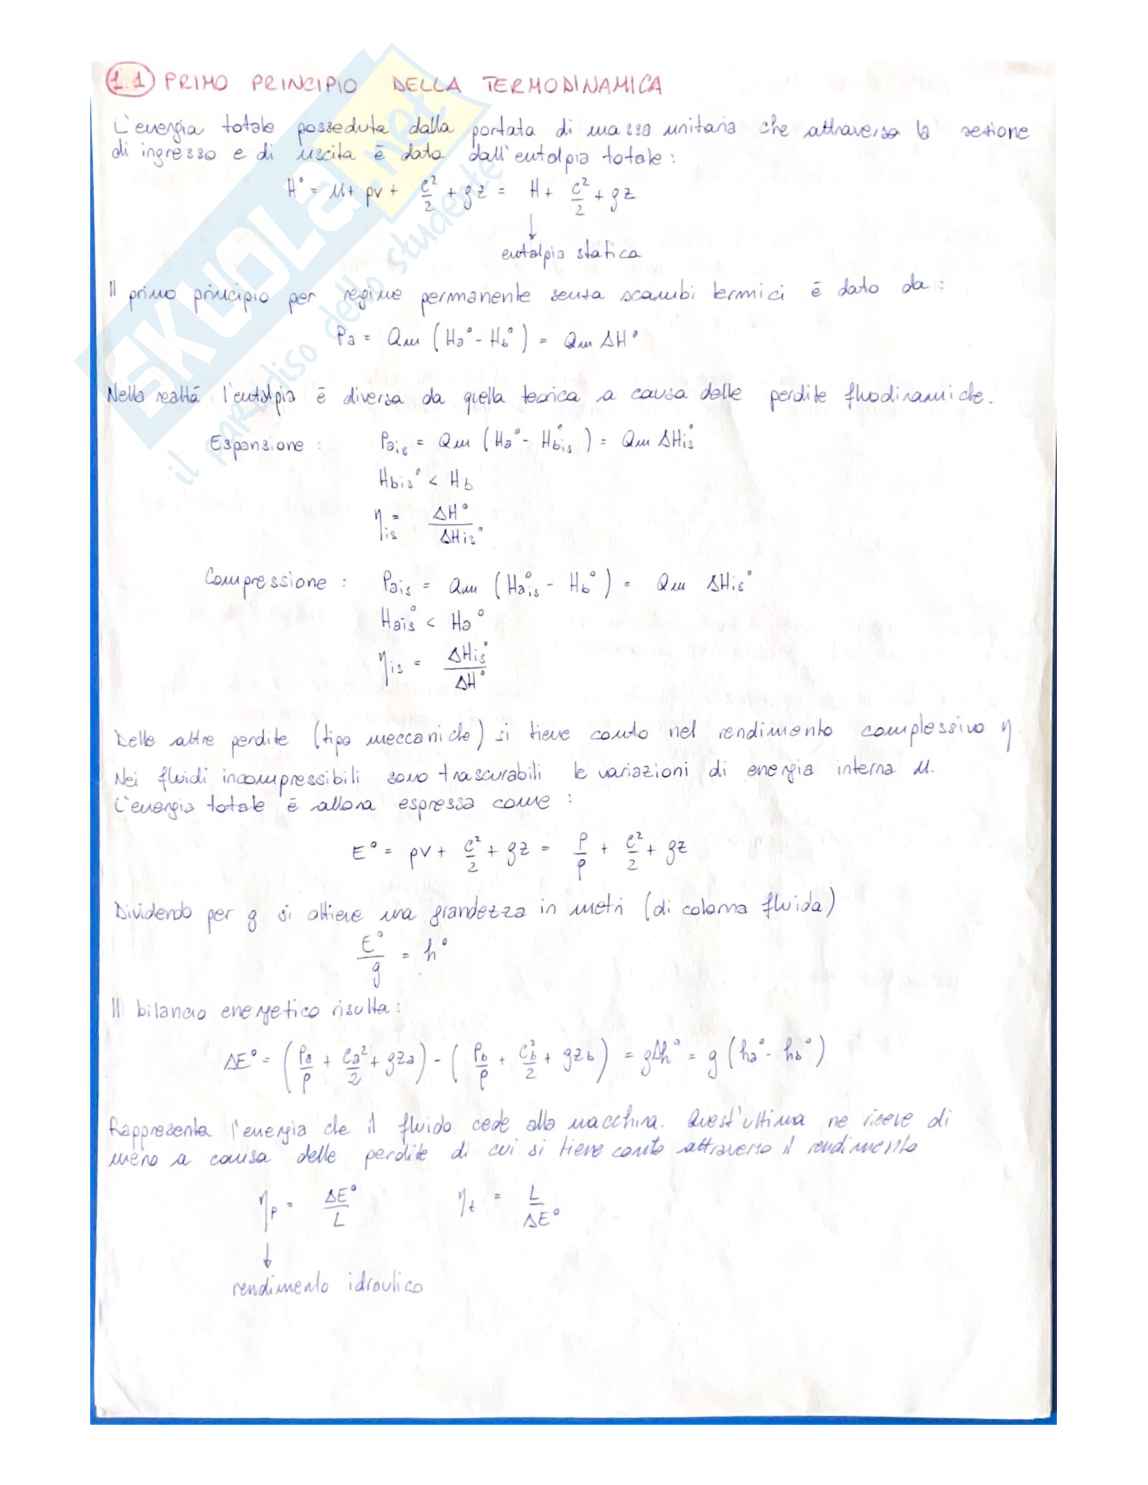 1.1 PRIMO PRINCIPIO DELLA TERMODINAMICA
L'energia totale posseduta dalla portata di massa unitaria che attraversa la sezione
di ingresso e di uscita è data dall'entalpia totale:
H° = u + pv + c²/2 + gz = H + c²/2 + gz
↓
entalpia statica
Il primo principio per regime permanente senza scambi termici è dato da:
Pa = Qm (Ha° - Hb°) = Qm ΔH°
Nella realtà l'entalpia è diversa da quella teorica a causa delle perdite fluodinamiche.
Espansione: Pais = Qm (Ha° - Hbis°) = Qm ΔHis°
Hbis° < Hb
ηis = ΔH°/ΔHis°
Compressione: Pais = Qm (Hais° - Hb°) = Qm ΔHis°
Hais° < Ha°
ηis = ΔHis°/ΔH°
Delle altre perdite (tipo meccaniche) si tiene conto nel rendimento complessivo η.
Nei fluidi incompressibili sono trascurabili le variazioni di energia interna u.
L'energia totale è allora espressa come:
E° = pv + c²/2 + gz = p/ρ + c²/2 + gz
Dividendo per g si ottiene una grandezza in metri (di colonna fluida)
E°/g = h°
Il bilancio energetico risulta:
ΔE° = (Pa/ρ + Ca²/2 + gza) - (Pb/ρ + Cb²/2 + gzb) = gΔh° = g (ha° - hb°)
Rappresenta l'energia che il fluido cede alla macchina. Quest'ultima ne riceve di
meno a causa delle perdite di cui si tiene conto attraverso il rendimento
ηp = ΔE°/L ηt = L/ΔE°
↓
rendimento idraulico
SKUOLA.net
il paradiso dello studente